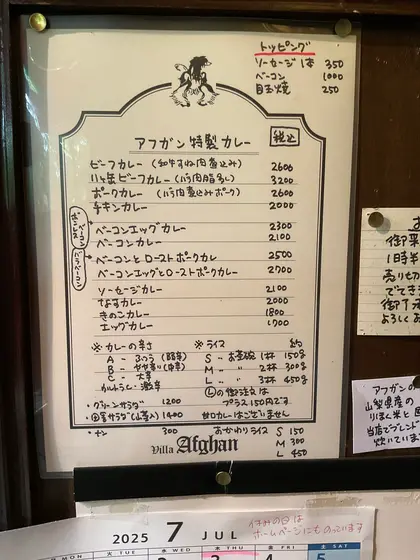 トッピング
ソーセージ1本 350
ベーコン 1000
目玉焼 250
アフガン特製カレー 税込
ビーフカレー (和牛すね肉煮込み) 2600
八ヶ岳ビーフカレー (バラ肉脂多し) 3200
ポークカレー (バラ肉煮込みポーク) 2600
チキンカレー 2000
ベーコンエッグカレー 2300
ベーコンカレー 2100
ベーコンとローストポークカレー 2500
ベーコンエッグとローストポークカレー 2700
バラベーコン
ソーセージカレー 2100
なすカレー 2000
きのこカレー 1800
エッグカレー 1700
※カレーの辛さ
A ふつう (中辛)
B やや辛り (中辛)
C 大辛
ウルトラC 激辛
・グリーンサラダ 1200
・田舎サラダ(山菜入) 1400
・ナン 300
※ライス 約
S お茶碗 1杯 150g
M 〃 2杯 300g
L 〃 3杯 450g
Ⓛの御注文は
プラス150円です
甘口カレーはございません
おかわりライス S 150
M 300
L 450
Villa Afghan
御来
1時半
売り切
でてき
御了承
よろしくお
アフガンの
山梨県産の
りほん米と
当店でブレンド
炊いていま
休みの日は
ホームページにものっています
2025 7 JUL
MON 火 TUE 水 WED 木 THU 金 FRI 土 SAT
2 3 4 5